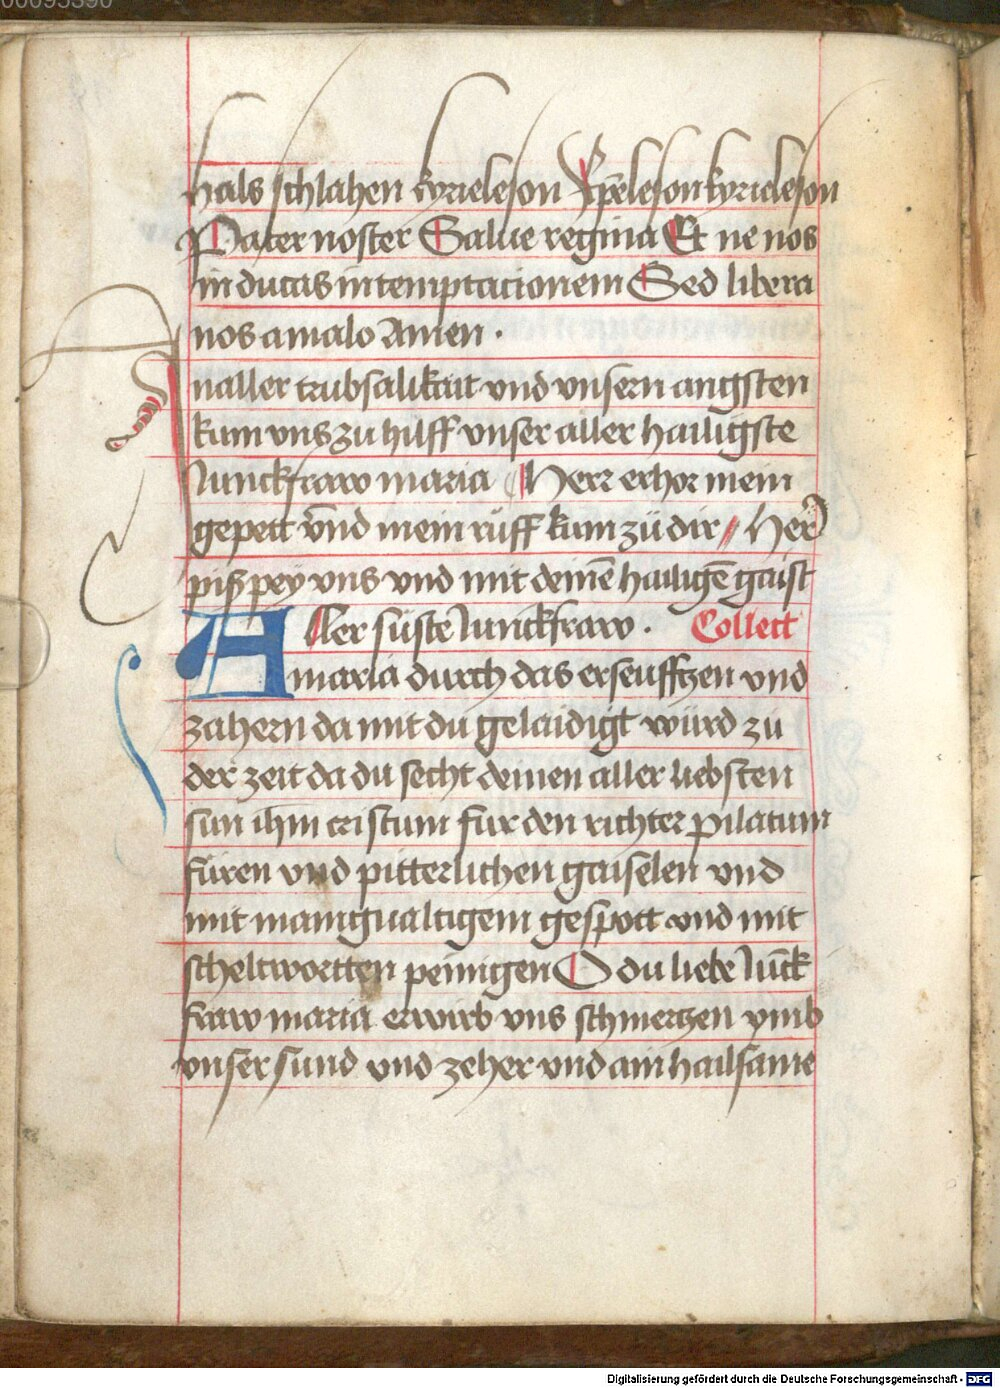 00093390
hals schlahen kyrieleson Xp̄eleson kyrieleson
Pater noster Salue regina Et ne nos
in ducas in temptacionem Sed libera
nos a malo Amen ·
In aller trubsalikait vnd vnsern angsten
kum vns zu hilff vnser aller hailigste
Junckfraw maria Herr erhor mein
gepett vnd mein rüff kum zü dir // Herr
piß pey vns vnd mit deinē hailigē gaist
Aller süste Junckfraw . Collect
maria durch das erseufftzen vnd
zahern da mit du gelaidigt würd zü
der zeit da du secht deinen aller liebsten
sun ihm cristum fur den richter pilatum
füren vnd pitterlichen gaiselen vnd
mit manigualtigem gespott vnd mit
scheltwortten peinigen O du liebe Jūck
fraw maria erwirb vns schmertzen vmb
vnser sund vnd zeher vnd ain hailsame
Digitalisierung gefördert durch die Deutsche Forschungsgemeinschaft - DFG